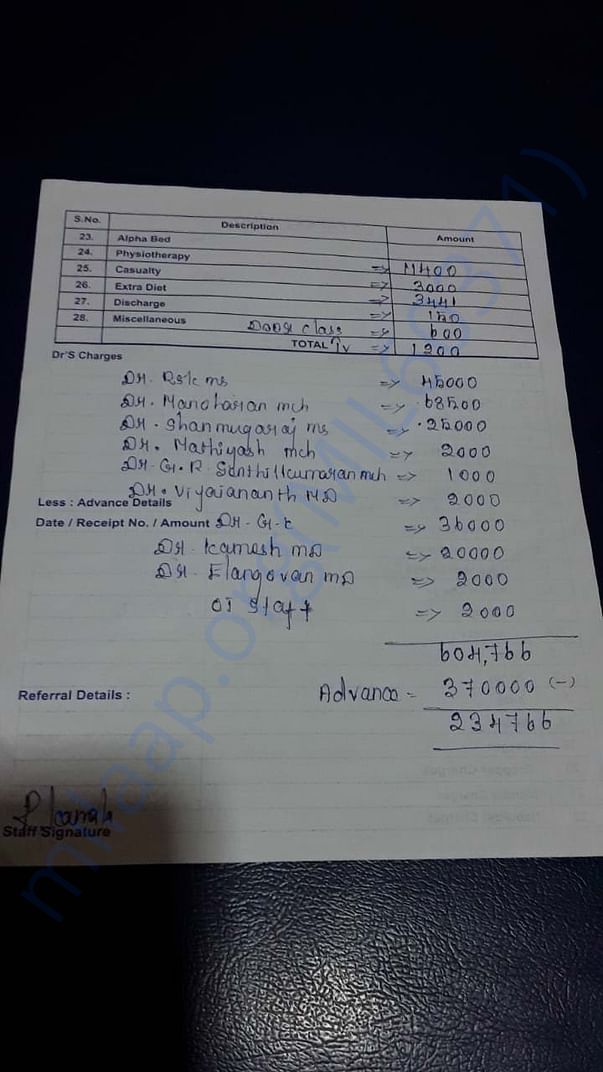 S.No. Description Amount
23. Alpha Bed
24. Physiotherapy
25. Casualty => 11400
26. Extra Diet => 3000
27. Discharge => 3441
28. Miscellaneous => 150
Door Class => 600
TOTAL Tv => 1200
Dr'S Charges
DR. RSK MS => 45000
DR. Manoharan mch => 68500
DR. Shanmugaraj ms => 25000
DR. Mathiyash mch => 2000
DR. G.R. Senthilkumaran mch => 1000
DR. Vijaiananth MD => 2000
Less : Advance Details
Date / Receipt No. / Amount DR. G.K => 36000
DR. Kamesh MD => 20000
DR. Elangovan MD => 2000
OT Staff => 2000
604,766
Referral Details : Advance = 370000 (-)
234766
Staff Signature
milaap.org